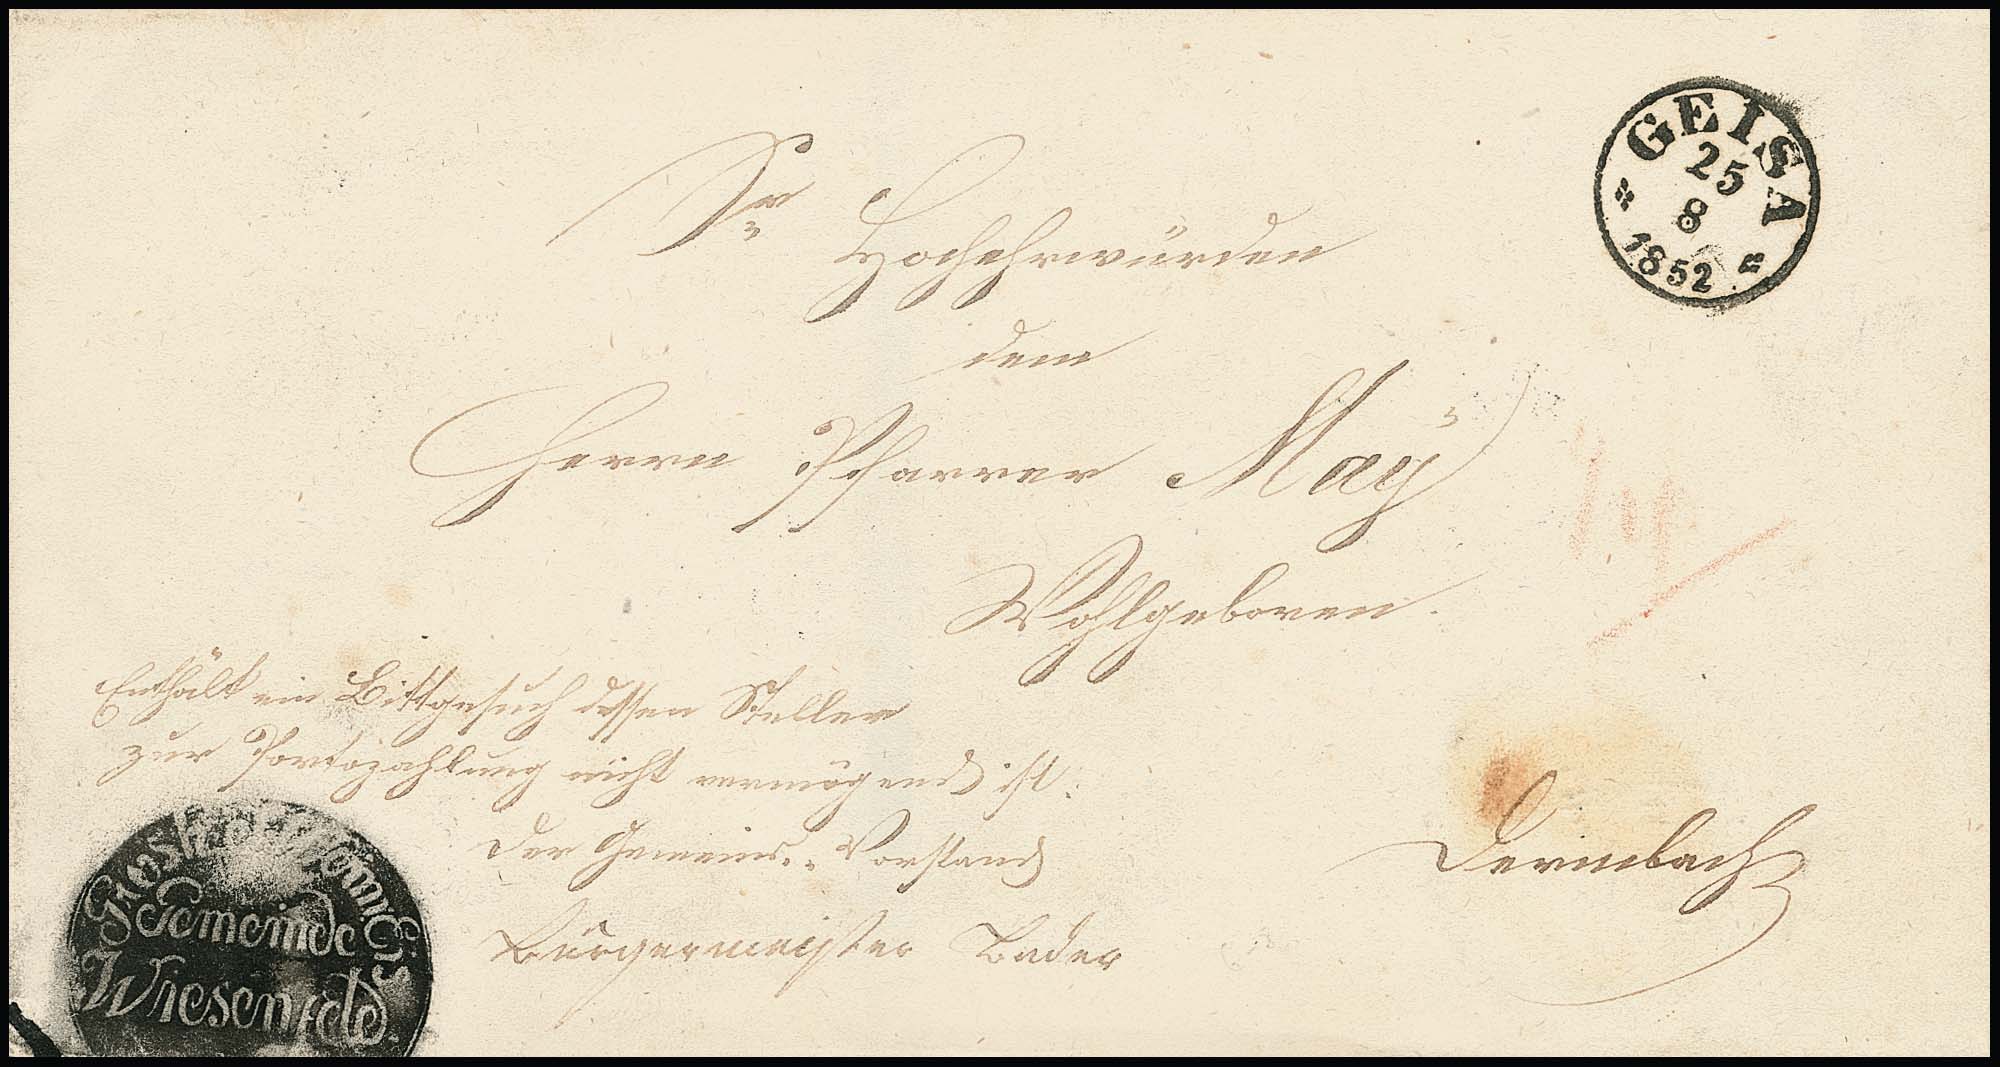 GEISA
25
8
1852
Sr Hochehrwürden
dem
Herrn Pfarrer Maÿ
Wohlgeboren.
Enthält ein Bittgesuch dessen Steller
zur Portozahlung nicht vermögend ist.
Der Gemeinds-Vorstand
Bürgermeister Bader
Dermbach
Gemeinde
Wiesenfeld.